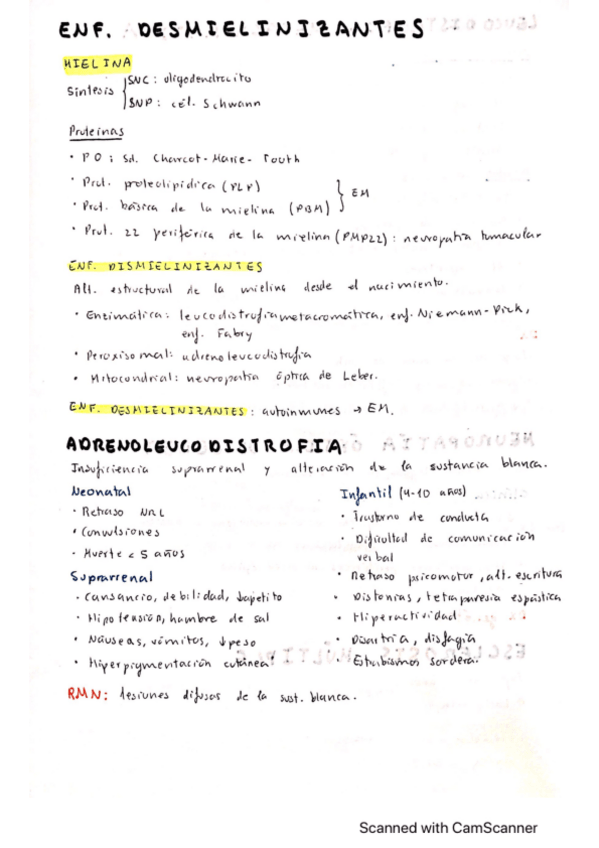 ENF. DESMIELINIZANTES
MIELINA
Síntesis { SNC: oligodendrocito
SNP: cél. Schwann
Proteínas
• P0: Sd. Charcot-Marie-Tooth
• Prot. proteolipídica (PLP)
• Prot. básica de la mielina (PBM) } EM
• Prot. 22 periférica de la mielina (PMP22): neuropatía tomacular
ENF. DISMIELINIZANTES
Alt. estructural de la mielina desde el nacimiento.
• Enzimática: leucodistrofia metacromática, enf. Niemann-Pick,
enf. Fabry
• Peroxisomal: adrenoleucodistrofia
• Mitocondrial: neuropatía óptica de Leber.
ENF. DESMIELINIZANTES: autoinmunes → EM.
ADRENOLEUCODISTROFIA
Insuficiencia suprarrenal y alteración de la sustancia blanca.
Neonatal
• Retraso NRL
• Convulsiones
• Muerte < 5 años
Suprarrenal
• Cansancio, debilidad, ↓apetito
• Hipotensión, hambre de sal
• Náuseas, vómitos, ↓peso
• Hiperpigmentación cutánea
Infantil (4-10 años)
• Trastorno de conducta
• Dificultad de comunicación
verbal
• Retraso psicomotor, alt. escritura
• Distonías, tetraparesia espástica
• Hiperactividad
• Disartria, disfagia
• Estrabismos sordera.
RMN: lesiones difusas de la sust. blanca.
Scanned with CamScanner